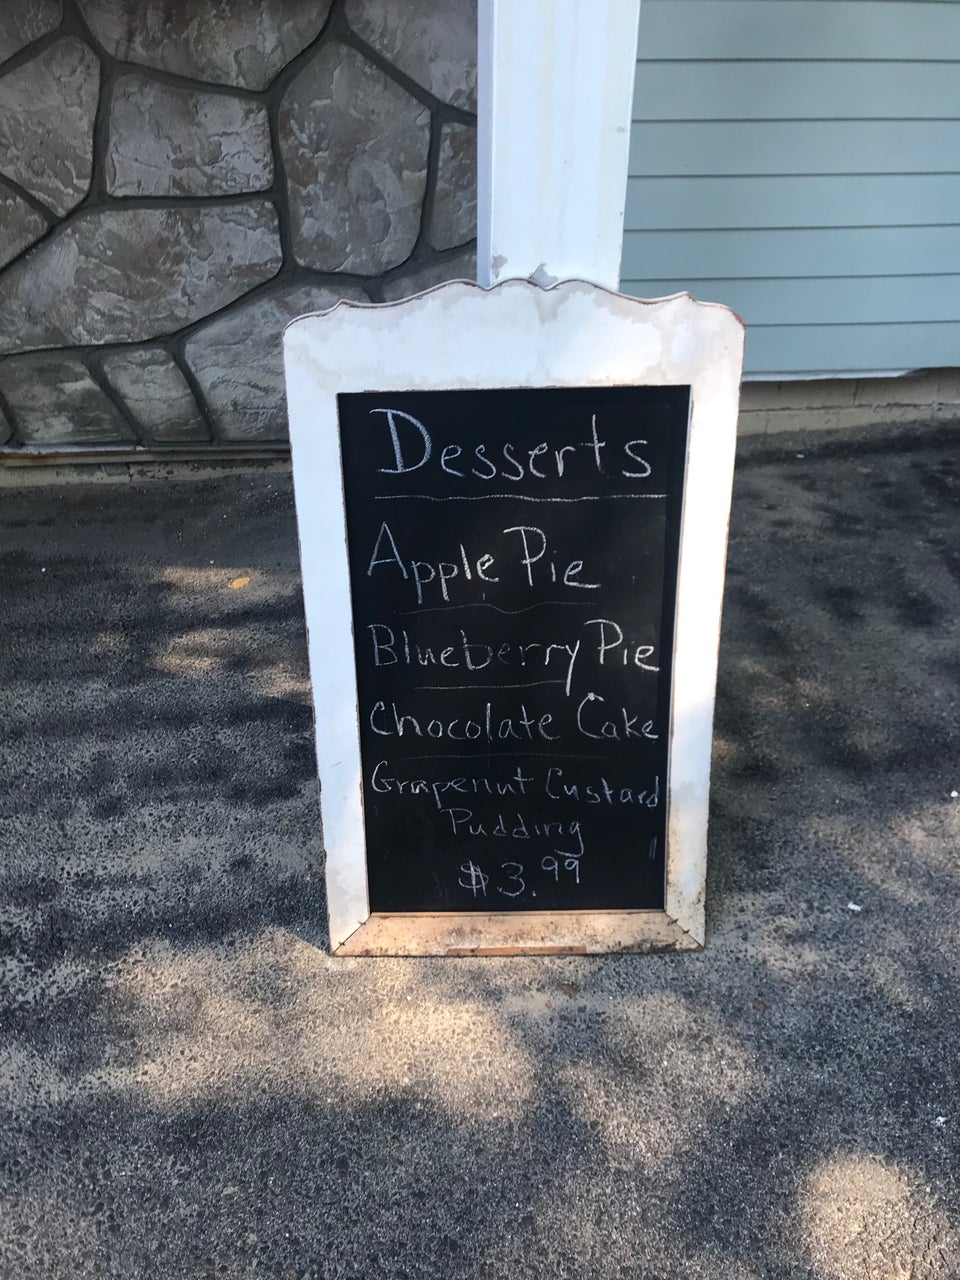 Desserts
Apple Pie
Blueberry Pie
Chocolate Cake
Grapenut Custard
Pudding
$3.99